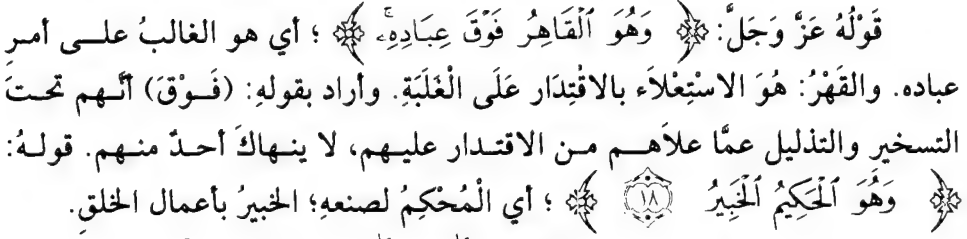 قَوْلُهُ عَزَّ وَجَلَّ: ﴿ وَهُوَ ٱلْقَاهِرُ فَوْقَ عِبَادِهِۦۚ ﴾ ؛ أي هو الغالبُ علـى أمـرِ
عباده. والقَهْرُ: هُوَ الاسْتِعْلاَء بالاقْتِدَار عَلَى الْغَلَبَةِ. وأراد بقولهِ: (فَـوْقَ) أنَّـهم تحـتَ
التسخير والتذليل عمَّا علاَهـم مـن الاقتـدار عليـهم، لا ينـهاكَ أحـدٌ منـهم. قولـهُ:
﴿ وَهُوَ ٱلْحَكِيمُ ٱلْخَبِيرُ ١٨ ﴾ ؛ أي الْمُحْكِمُ لصنعهِ؛ الخبيرُ بأعمال الخلقِ.